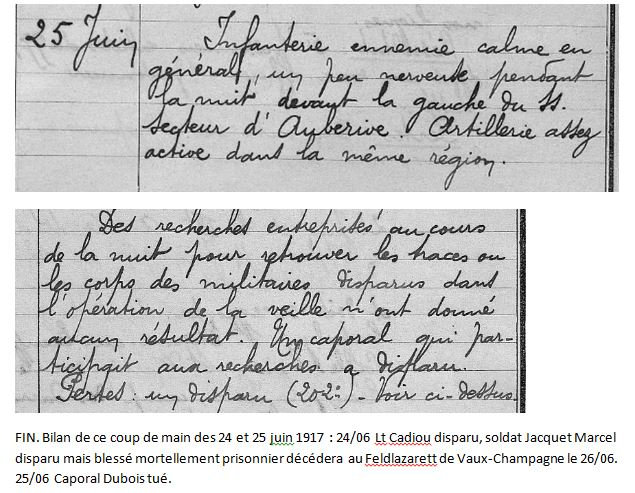 25 Juin
Infanterie ennemie calme en
général, un peu nerveuse pendant
la nuit devant la gauche du ss.
secteur d'Auberive. Artillerie assez
active dans la même région.
Des recherches entreprises au cours
de la nuit pour retrouver les traces ou
les corps des militaires disparus dans
l'opération de la veille n'ont donné
aucun résultat. Un caporal qui par-
ticipait aux recherches a disparu.
Pertes : un disparu (202e) - Voir ci-dessus.
FIN. Bilan de ce coup de main des 24 et 25 juin 1917 : 24/06 Lt Cadiou disparu, soldat Jacquet Marcel
disparu mais blessé mortellement prisonnier décédera au Feldlazarett de Vaux-Champagne le 26/06.
25/06 Caporal Dubois tué.